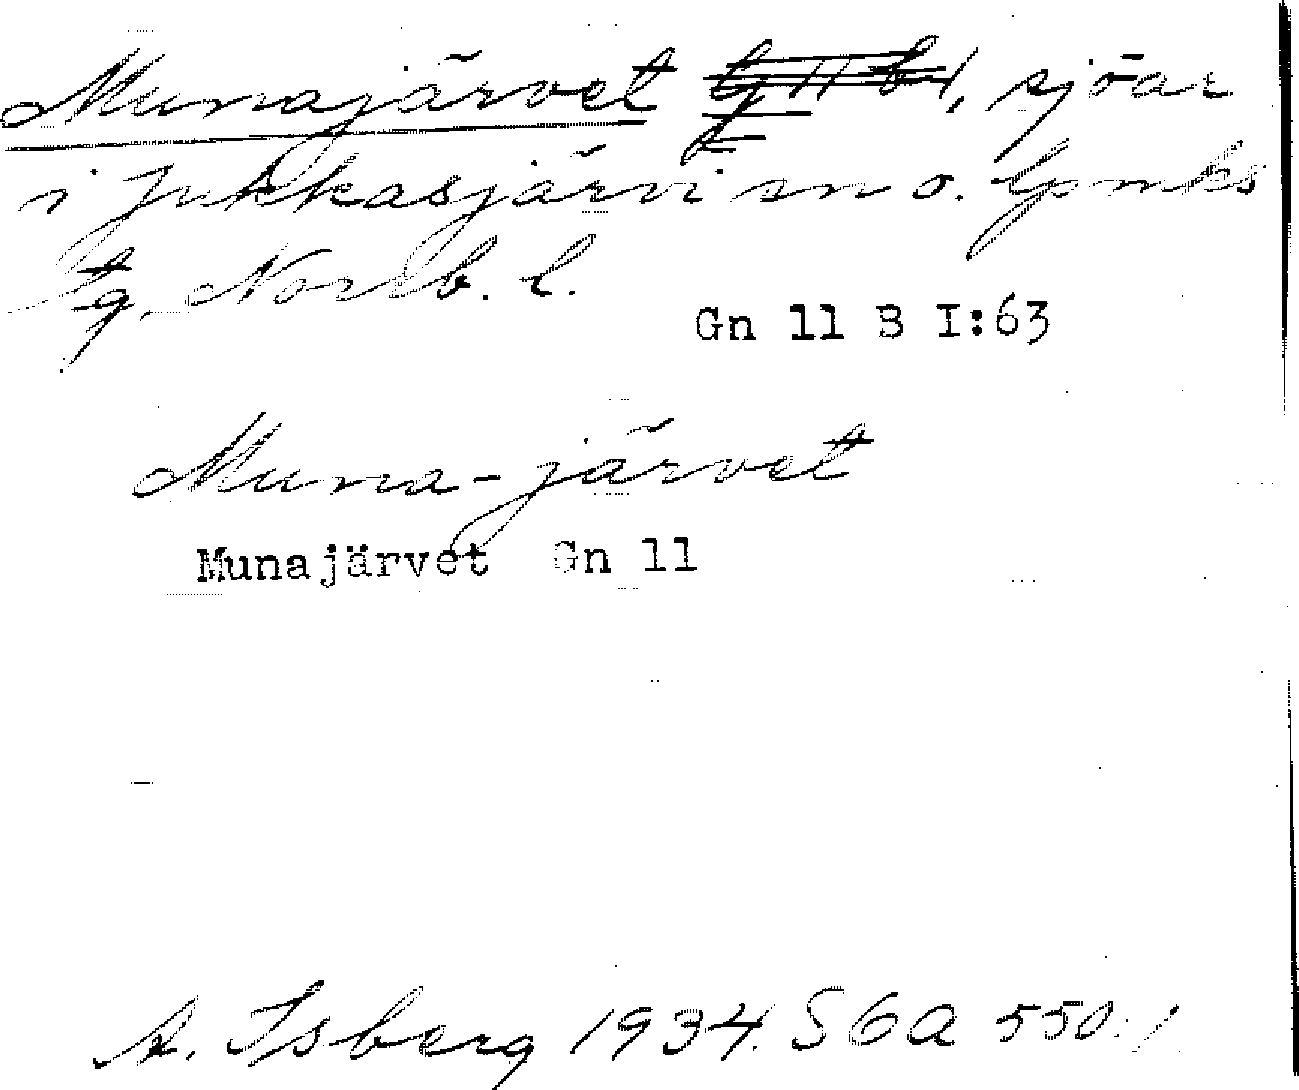 Munajärvet, sjöar
i Jukkasjärvi sn o. lpmks
tg, Norrb. l.
Gn 11 B I:63
Muna-järvet
Munajärvet Gn 11
A. Isberg 1934. SOA 550:1